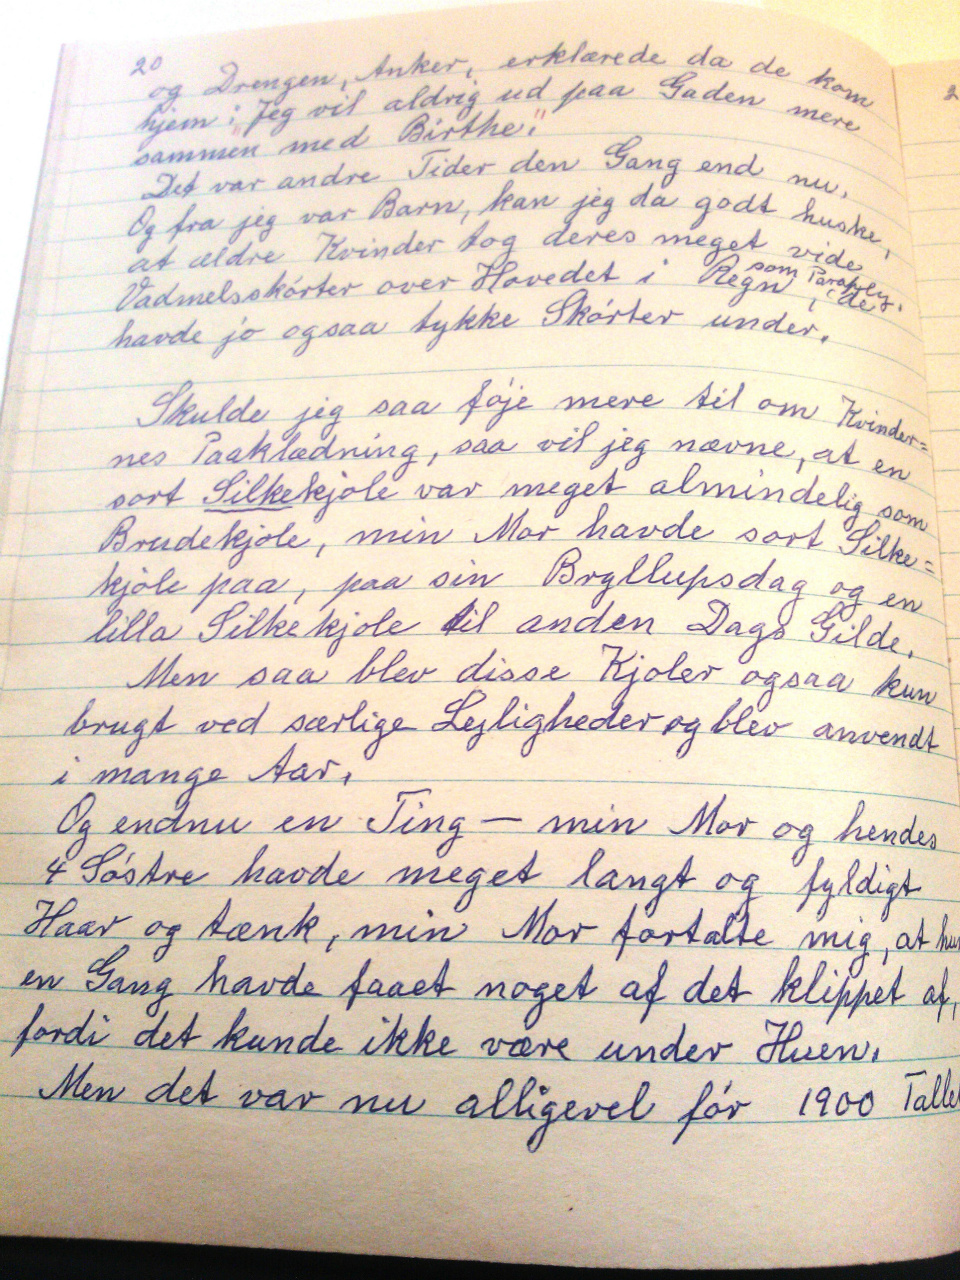 20
og Drengen, Anker, erklærede da de kom
hjem: "Jeg vil aldrig ud paa Gaden mere
sammen med Birthe."
Det var andre Tider den Gang end nu.
Og fra jeg var Barn, kan jeg da godt huske,
at ældre Kvinder tog deres meget vide
som Paraply.
Vadmelsskórter over Hovedet i Regn, de
havde jo ogsaa tykke Skórter under.
Skulde jeg saa fóje mere til om Kvinder=
nes Paaklædning, saa vil jeg nævne, at en
sort Silkekjole var meget almindelig som
Brudekjole, min Mor havde sort Silke=
kjole paa, paa sin Bryllupsdag og en
lilla Silkekjole til anden Dags Gilde.
Men saa blev disse Kjoler ogsaa kun
brugt ved særlige Lejligheder og blev anvendt
i mange Aar.
Og endnu en Ting — min Mor og hendes
4 Sóstre havde meget langt og fyldigt
Haar og tænk, min Mor fortalte mig, at hun
en Gang havde faaet noget af det klippet af,
fordi det kunde ikke være under Huen.
Men det var nu alligevel fór 1900 Tallet